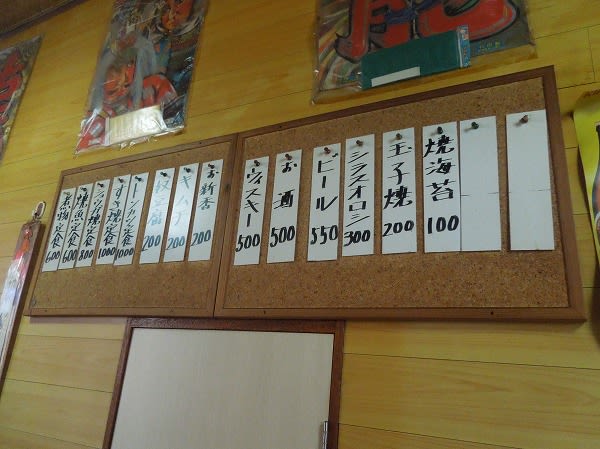 焼海苔 100
玉子焼 200
シラスオロシ 300
ビール 550
お酒 500
ウィスキー 500
お新香 200
キムチ 200
奴豆腐 200
トンカツ定食 1000
すき焼定食 1000
焼魚定食 600
煮物定食 600